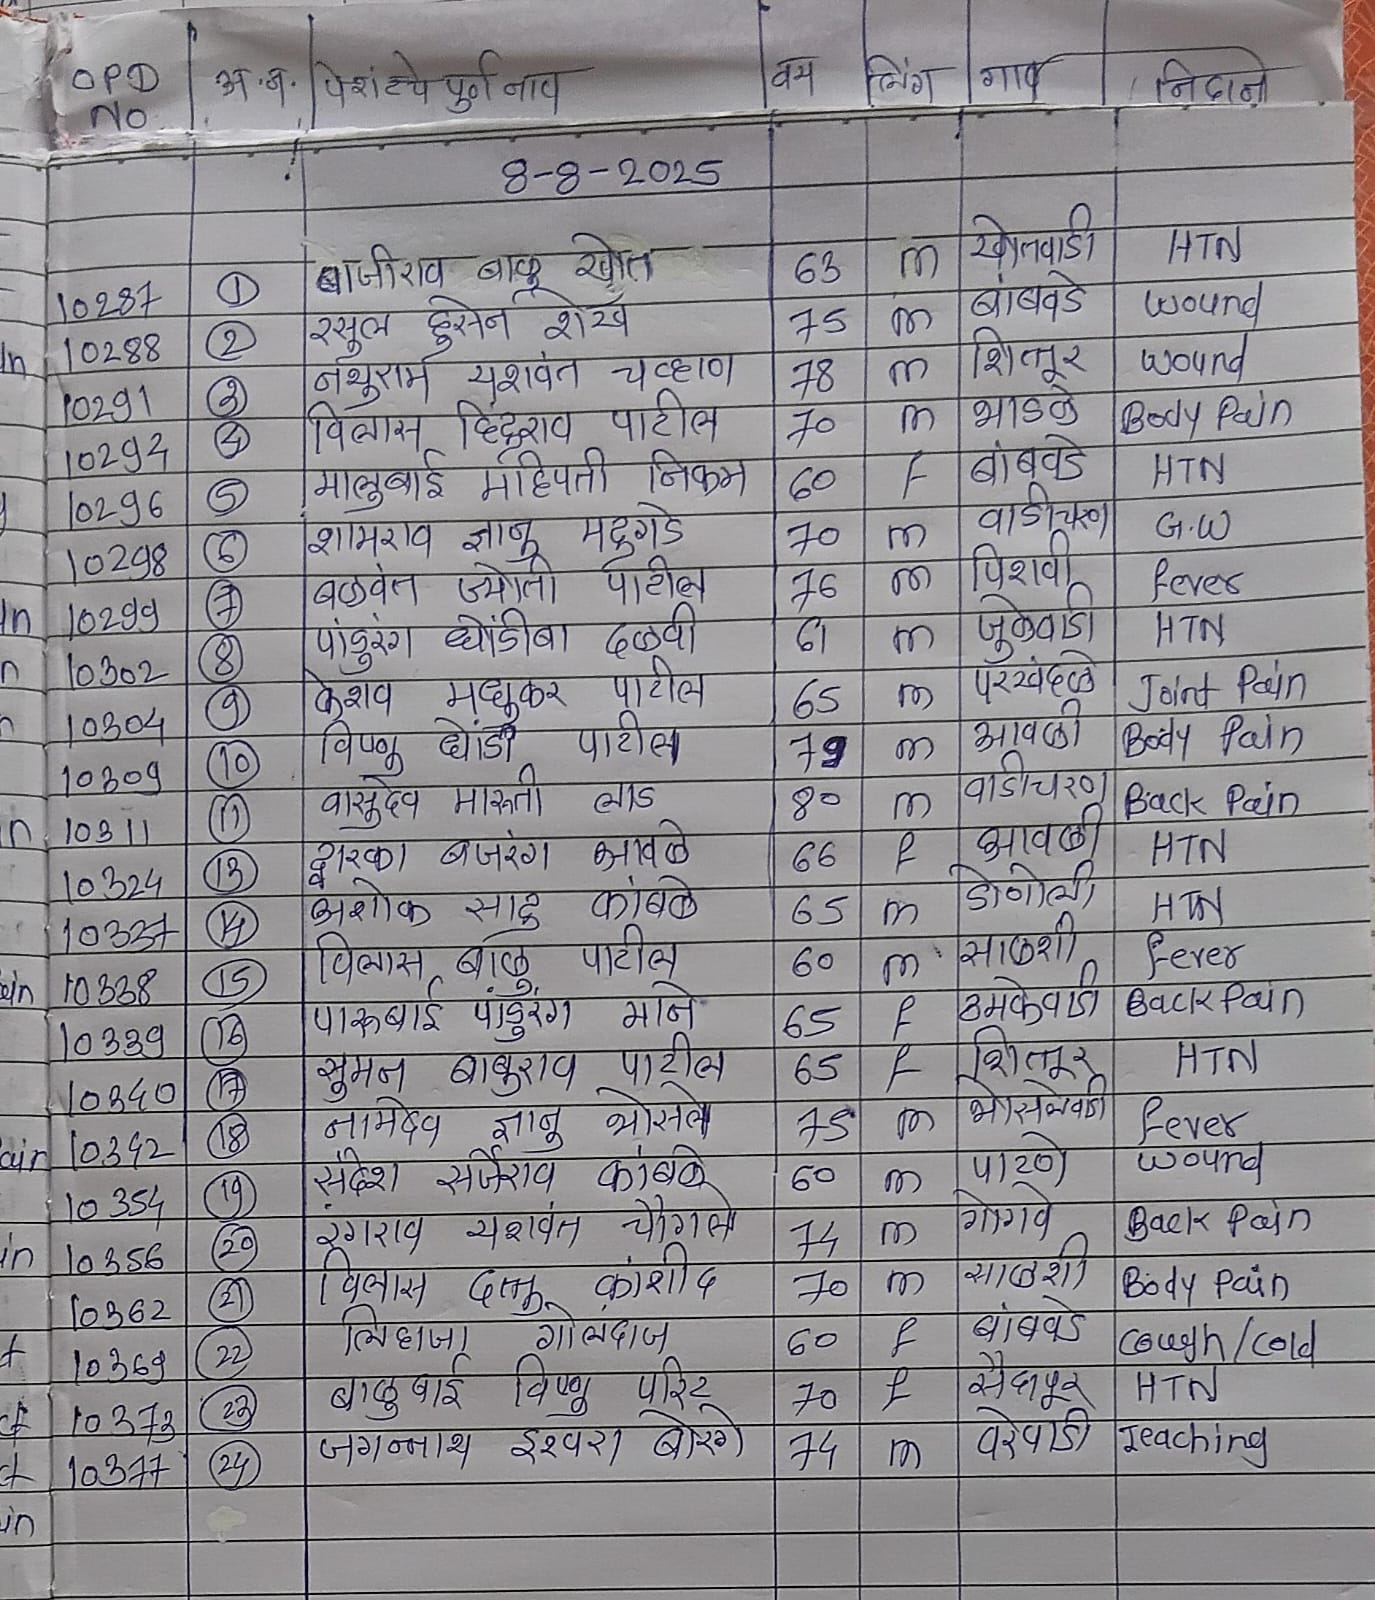 OPD No. अ.नं. पेशंटचे पुर्ण नाव वय लिंग गाव निदान
8-8-2025
10287 1 बाजीराव बाळू खोत 63 m खोतवाडी HTN
10288 2 रसुल हुसेन शेख 75 m बांबवडे wound
10291 3 नथुराम यशवंत चव्हाण 78 m शित्तूर wound
10294 4 विलास हिंदूराव पाटील 70 m भाडळे Body Pain
10296 5 मालुबाई महिपती निकम 60 F बांबवडे HTN
10298 6 शामराव ज्ञानू मदुगडे 70 m वाडीचरण G.W
10299 7 बळवंत ज्योती पाटील 76 m पिशवी fever
10302 8 पांडुरंग धोंडीबा दळवी 61 m जुळेवाडी HTN
10304 9 केशव मधुकर पाटील 65 m परखंदळे Joint Pain
10309 10 विष्णू धोंडी पाटील 79 m आवळी Body Pain
10311 11 वासुदेव मारुती लाड 80 m वाडीचरण Back Pain
10324 13 द्वारका बजरंग आवळे 66 F आवळी HTN
10337 14 अशोक सादु कांबळे 65 m डोणोली HTN
10338 15 विलास बाळू पाटील 60 m साळशी fever
10339 16 पारुबाई पांडुरंग माने 65 F ठमकेवाडी Back Pain
10340 17 सुमन बाबुराव पाटील 65 F शित्तूर HTN
10342 18 नामदेव ज्ञानू भोसले 75 m भोसलेवाडी fever
10354 19 संदेश सर्जेराव कांबळे 60 m पाटणे wound
10356 20 रंगराव यशवंत चौगले 74 m गोगवे Back Pain
10362 21 विलास दत्तू काशीद 70 m साळशी Body Pain
10369 22 गोलंदाज 60 F बांबवडे cough/cold
10373 23 बाळुबाई विष्णू परिट 70 F सैदापूर HTN
10377 24 जगन्नाथ ईश्वरा बोरगे 74 m वरेवाडी Teaching